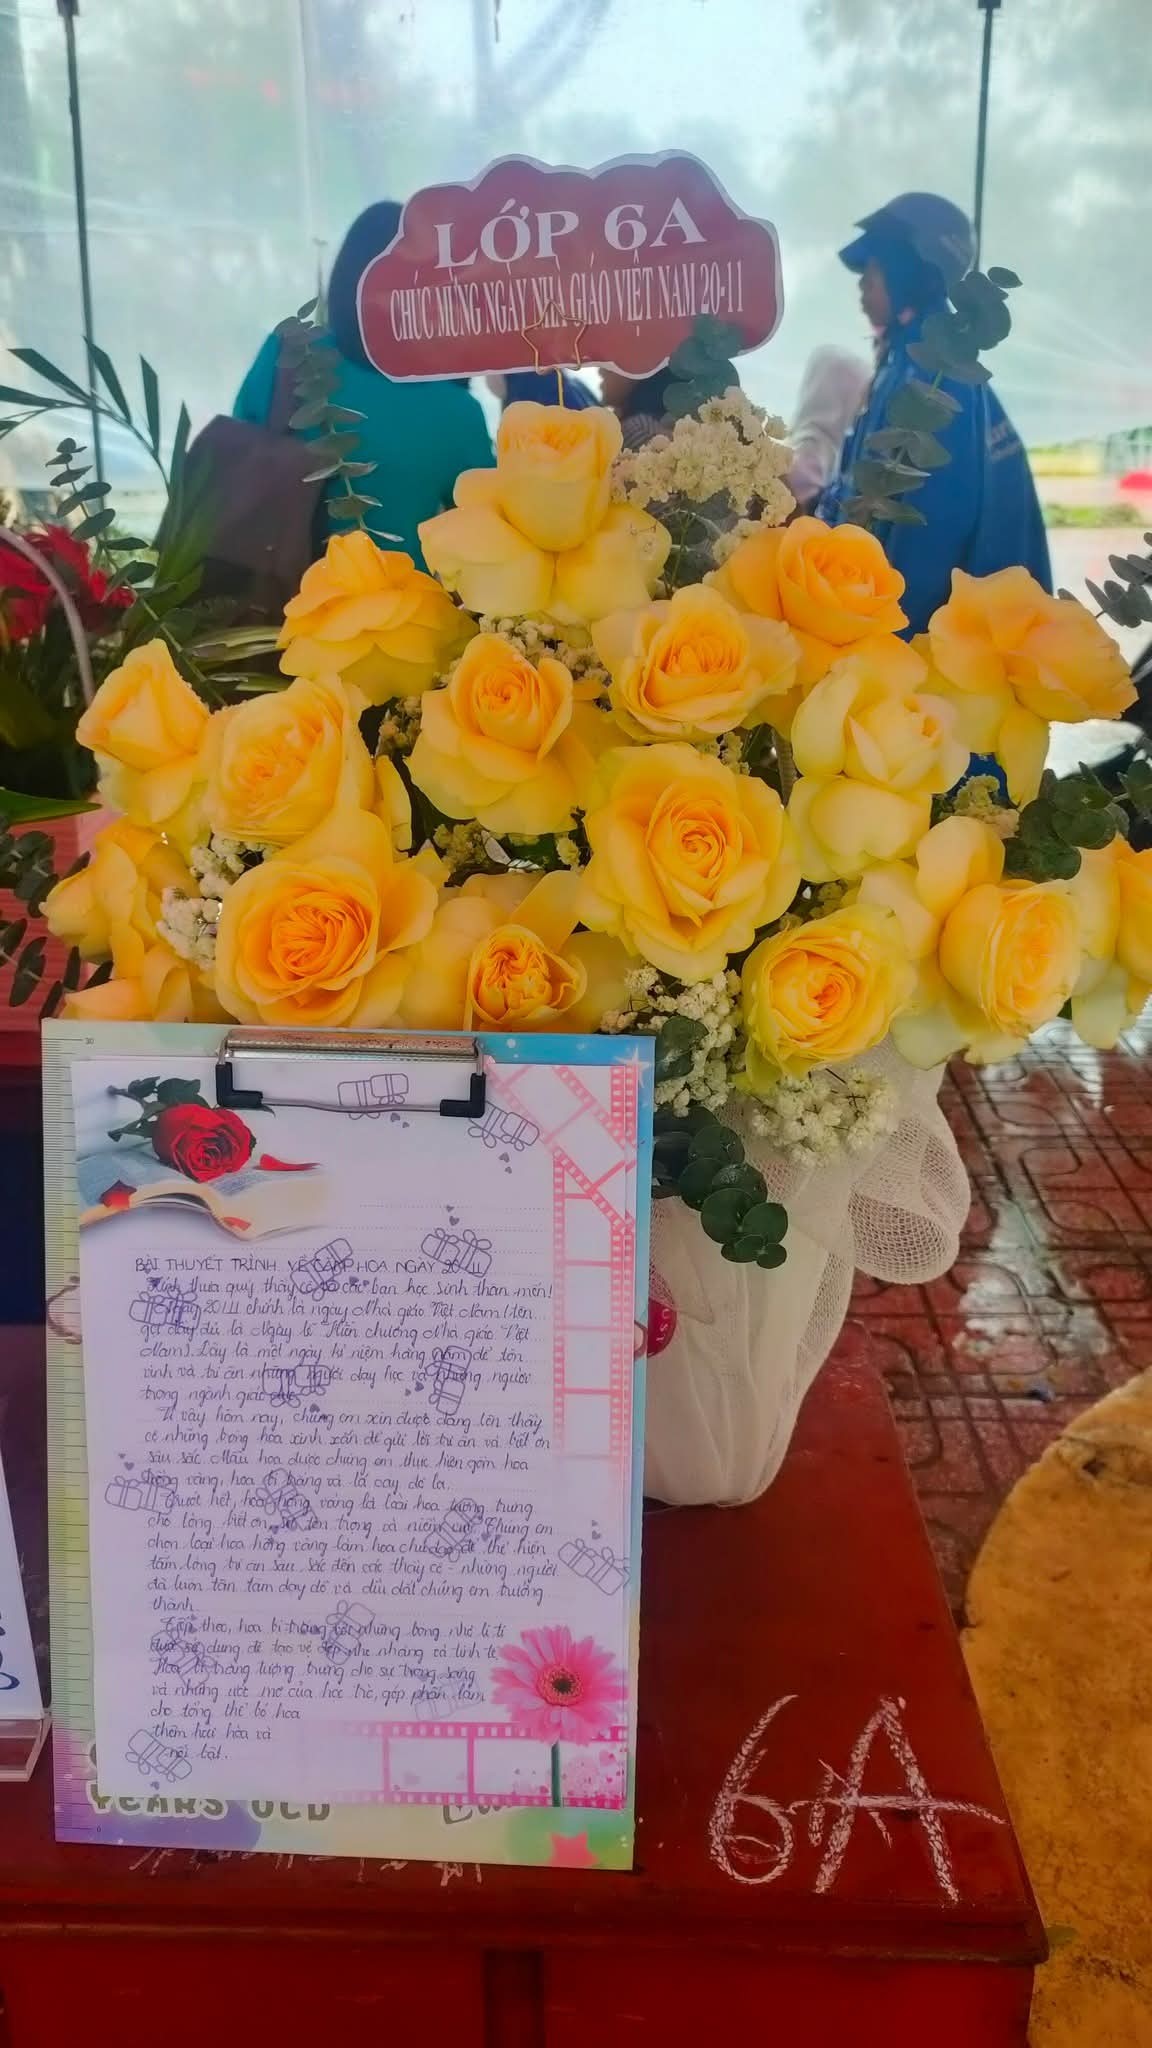 LỚP 6A
CHÚC MỪNG NGÀY NHÀ GIÁO VIỆT NAM 20-11
30
BÀI THUYẾT TRÌNH VỀ CẮM HOA NGÀY 20/11
Kính thưa quý thầy cô và các bạn học sinh thân mến!
Ngày 20/11 chính là ngày Nhà giáo Việt Nam (tên
gọi đầy đủ là Ngày lễ Hiến chương Nhà giáo Việt
Nam). Đây là một ngày kỉ niệm hằng năm để tôn
vinh và tri ân những người dạy học và những người
trong ngành giáo dục.
Vì vậy hôm nay, chúng em xin được dâng lên thầy
cô những bông hoa xinh xắn để gửi lời tri ân và biết ơn
sâu sắc. Mẫu hoa được chúng em thực hiện gồm hoa
hồng vàng, hoa bi trắng và lá cây đô la.
Trước hết, hoa hồng vàng là loài hoa tượng trưng
cho lòng biết ơn, sự tôn trọng và niềm vui. Chúng em
chọn loại hoa hồng vàng làm hoa chủ đạo để thể hiện
tấm lòng tri ân sâu sắc đến các thầy cô - những người
đã luôn tận tâm dạy dỗ và dìu dắt chúng em trưởng
thành.
Tiếp theo, hoa bi trắng với những bông nhỏ li ti
được sử dụng để tạo vẻ đẹp nhẹ nhàng và tinh tế.
Hoa bi trắng tượng trưng cho sự trong sáng
và những ước mơ của học trò, góp phần làm
cho tổng thể bó hoa
thêm hài hòa và
nổi bật.
YEARS OLD
0
6A